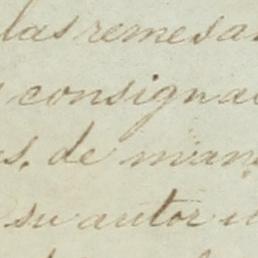 las remesa
consigna
s. de man
su autor